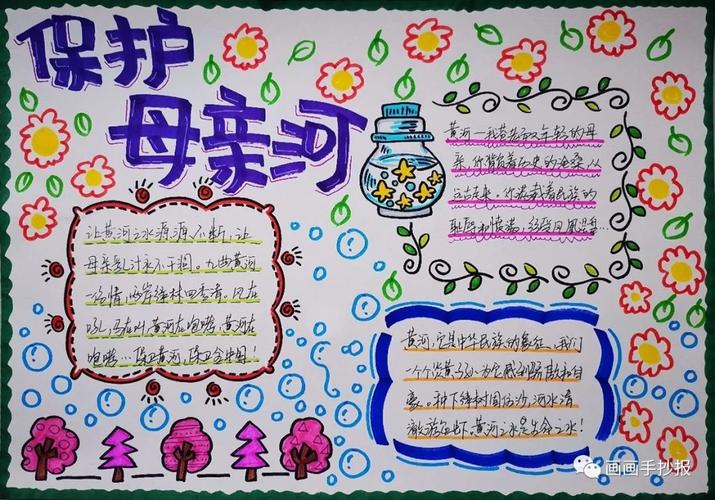 保护
母亲河
让黄河之水源源不断,让
母亲乳汁永不干涸。九曲黄河
一色情,两岸绿林四季清,风在
吼,马在叫,黄河在咆哮,黄河在
咆哮…保卫黄河,保卫全中国!
黄河一我苍老又年轻的母
亲,你背负着历史的沧桑从
远古走来,你满载着民族的
耻辱和愤懑,经沥风
黄河,它是中华民族的象征,我们
一个个炎黄子孙为它感到骄傲和自
豪。种下绿树固住沙,河水清
澈 黄河之水是生命之水!
画画手抄报